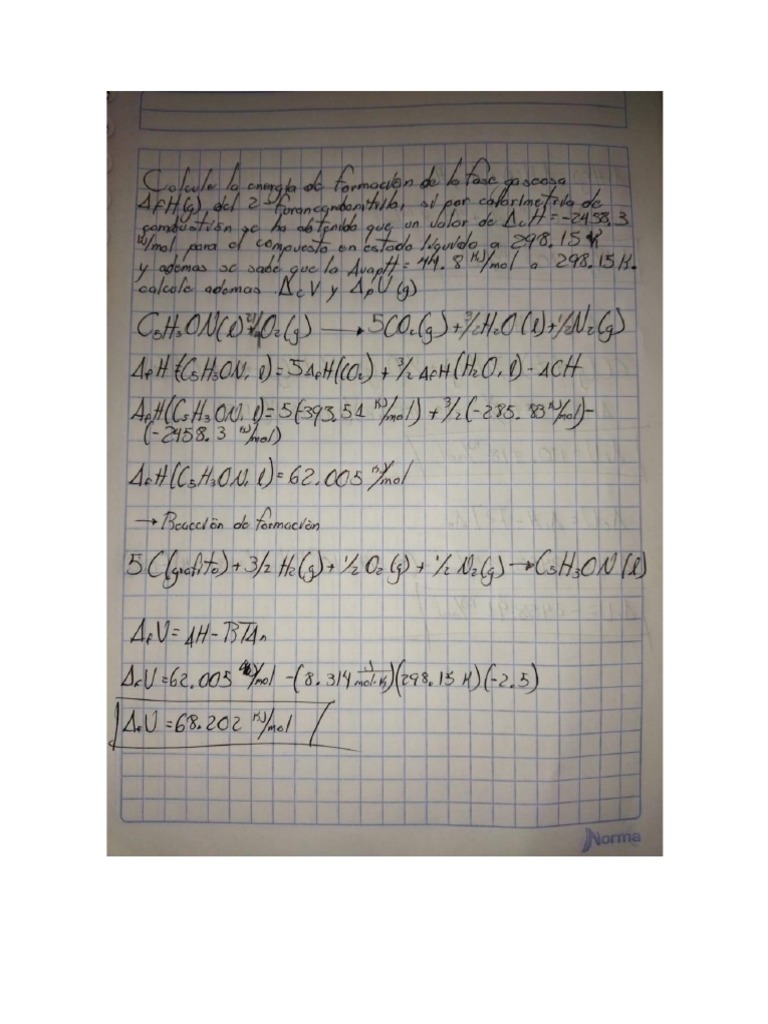 Calcule la energía de formación de la fase gaseosa
ΔfH(g) del 2-furancarbonitrilo, si por calorimetría de
combustión se ha obtenido que un valor de ΔcH=-2458.3
KJ/mol para el compuesto en estado líquido a 298.15 K
y ademas se sabe que la ΔvapH=44.8 KJ/mol a 298.15K.
calcule ademas ΔcU y ΔfU(g)
C5H3ON(l) + O2(g) → 5CO2(g)+3/2H2O(l)+1/2N2(g)
ΔfH (C5H3ON, l)=5ΔfH(CO2)+3/2 ΔfH(H2O,l)-ΔCH
ΔfH(C5H3ON,l)=5(-393.51 KJ/mol)+3/2(-285.83KJ/mol)-
(-2458.3 KJ/mol)
ΔfH(C5H3ON,l)=62.005 KJ/mol
→ Reacción de formación
5C(grafito)+3/2 H2(g)+1/2 O2(g)+1/2 N2(g)→C5H3ON(l)
ΔfU=ΔH-RTΔn
ΔfU=62.005 KJ/mol -(8.314 J/mol·K)(298.15 K)(-2.5)
ΔfU=68.202 KJ/mol
Norma